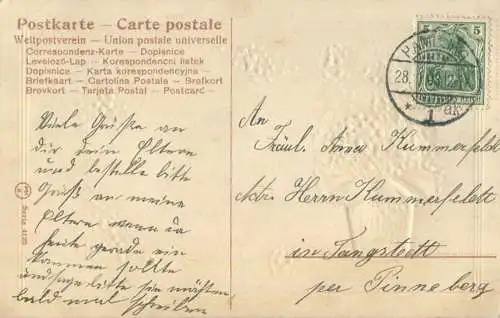 Postkarte — Carte postale
Weltpostverein — Union postale universelle
Correspondenz-Karte — Dopisnice
Levelező-Lap — Korespondencni listek
Dopisnica — Karta korespondencyjna —
Briefkaart — Cartolina Postale — Brefkort
Brevkort — Tarjeta Postal — Postcard —
Viele Grüße an
dir dein Eltern
und bestelle bitte
Gruß an meine
Eltern wenn da
heute gerade ein
kommen sollte
und sage bitte sie möchten
bald mal schreiben
Serie
5
28.
1
An
Fräul. Anna Kummerfeldt
Herrn Kummerfeldt
in Tangstedt
per Pinneberg